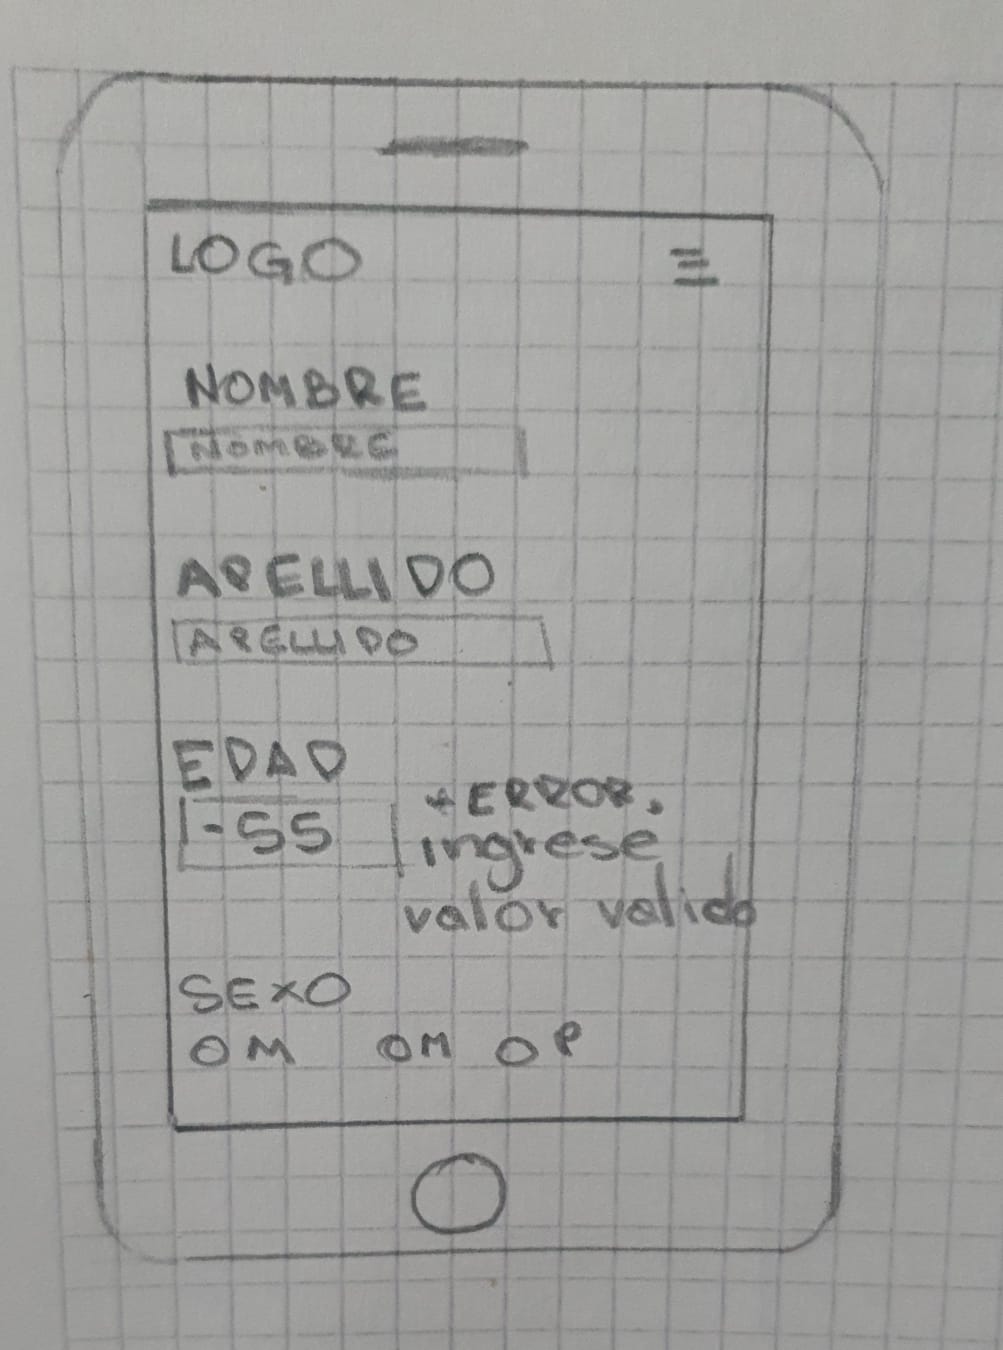 LOGO
NOMBRE
NOMBRE
APELLIDO
APELLIDO
EDAD
-55
* ERROR.
ingrese
valor valido
SEXO
O M O M O P